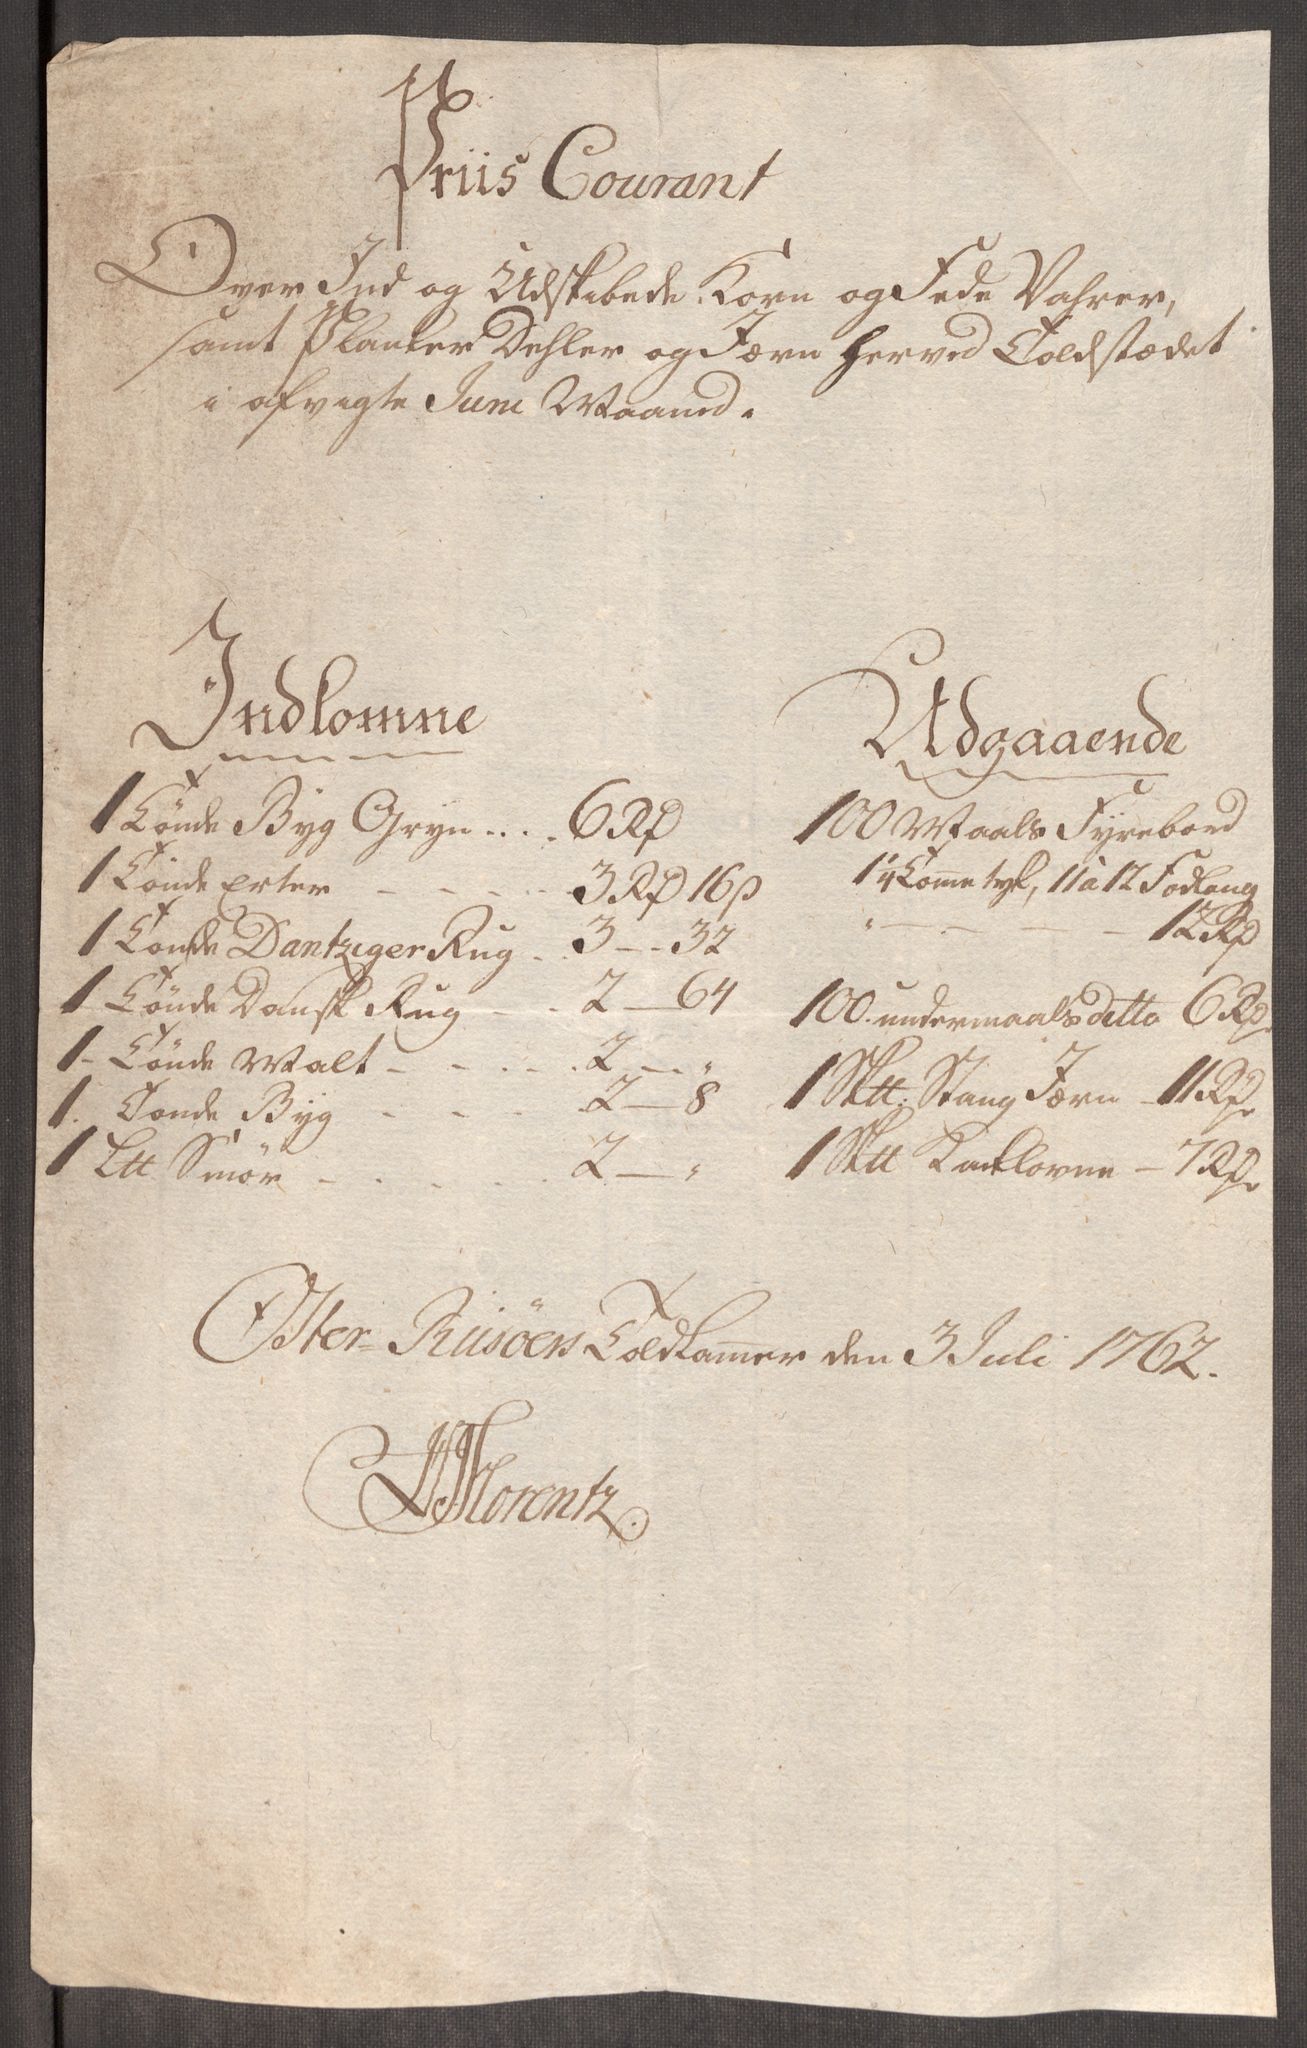 Priis Courant
Over Ind og Udskibede Korn og Fede Vahrer,
samt Planker Dehler og Jærn herved Toldstædet
i afvigte Juni Maaned.
Indkomne
1 Tönde Byg Gryn .... 6 Rd
1 Tönde Erter - - - - 3 Rd 16 s
1 Tönde Dantziger Rug .. 3 - 32
1 Tönde Dansk Rug - - 2 - 64
1 - Tönde Malt - - - - 2 - "
1. Tonde Byg - - - - 2 - 8
1 Ltt Smör - - - - 2 - "
Udgaaende
100 Maals Fyrebord
1 1/4 Tomme tyk, 11 a 12 Fod lang
" - - - - 12 Rd
100 undermaals ditto 6 Rd.
1 Sktt. Stang Jærn - 11 Rd.
1 Sktt Kacklovne - 7 Rd.
Öster-Riisöers Toldkammer den 3 Juli 1762.
Lorentz